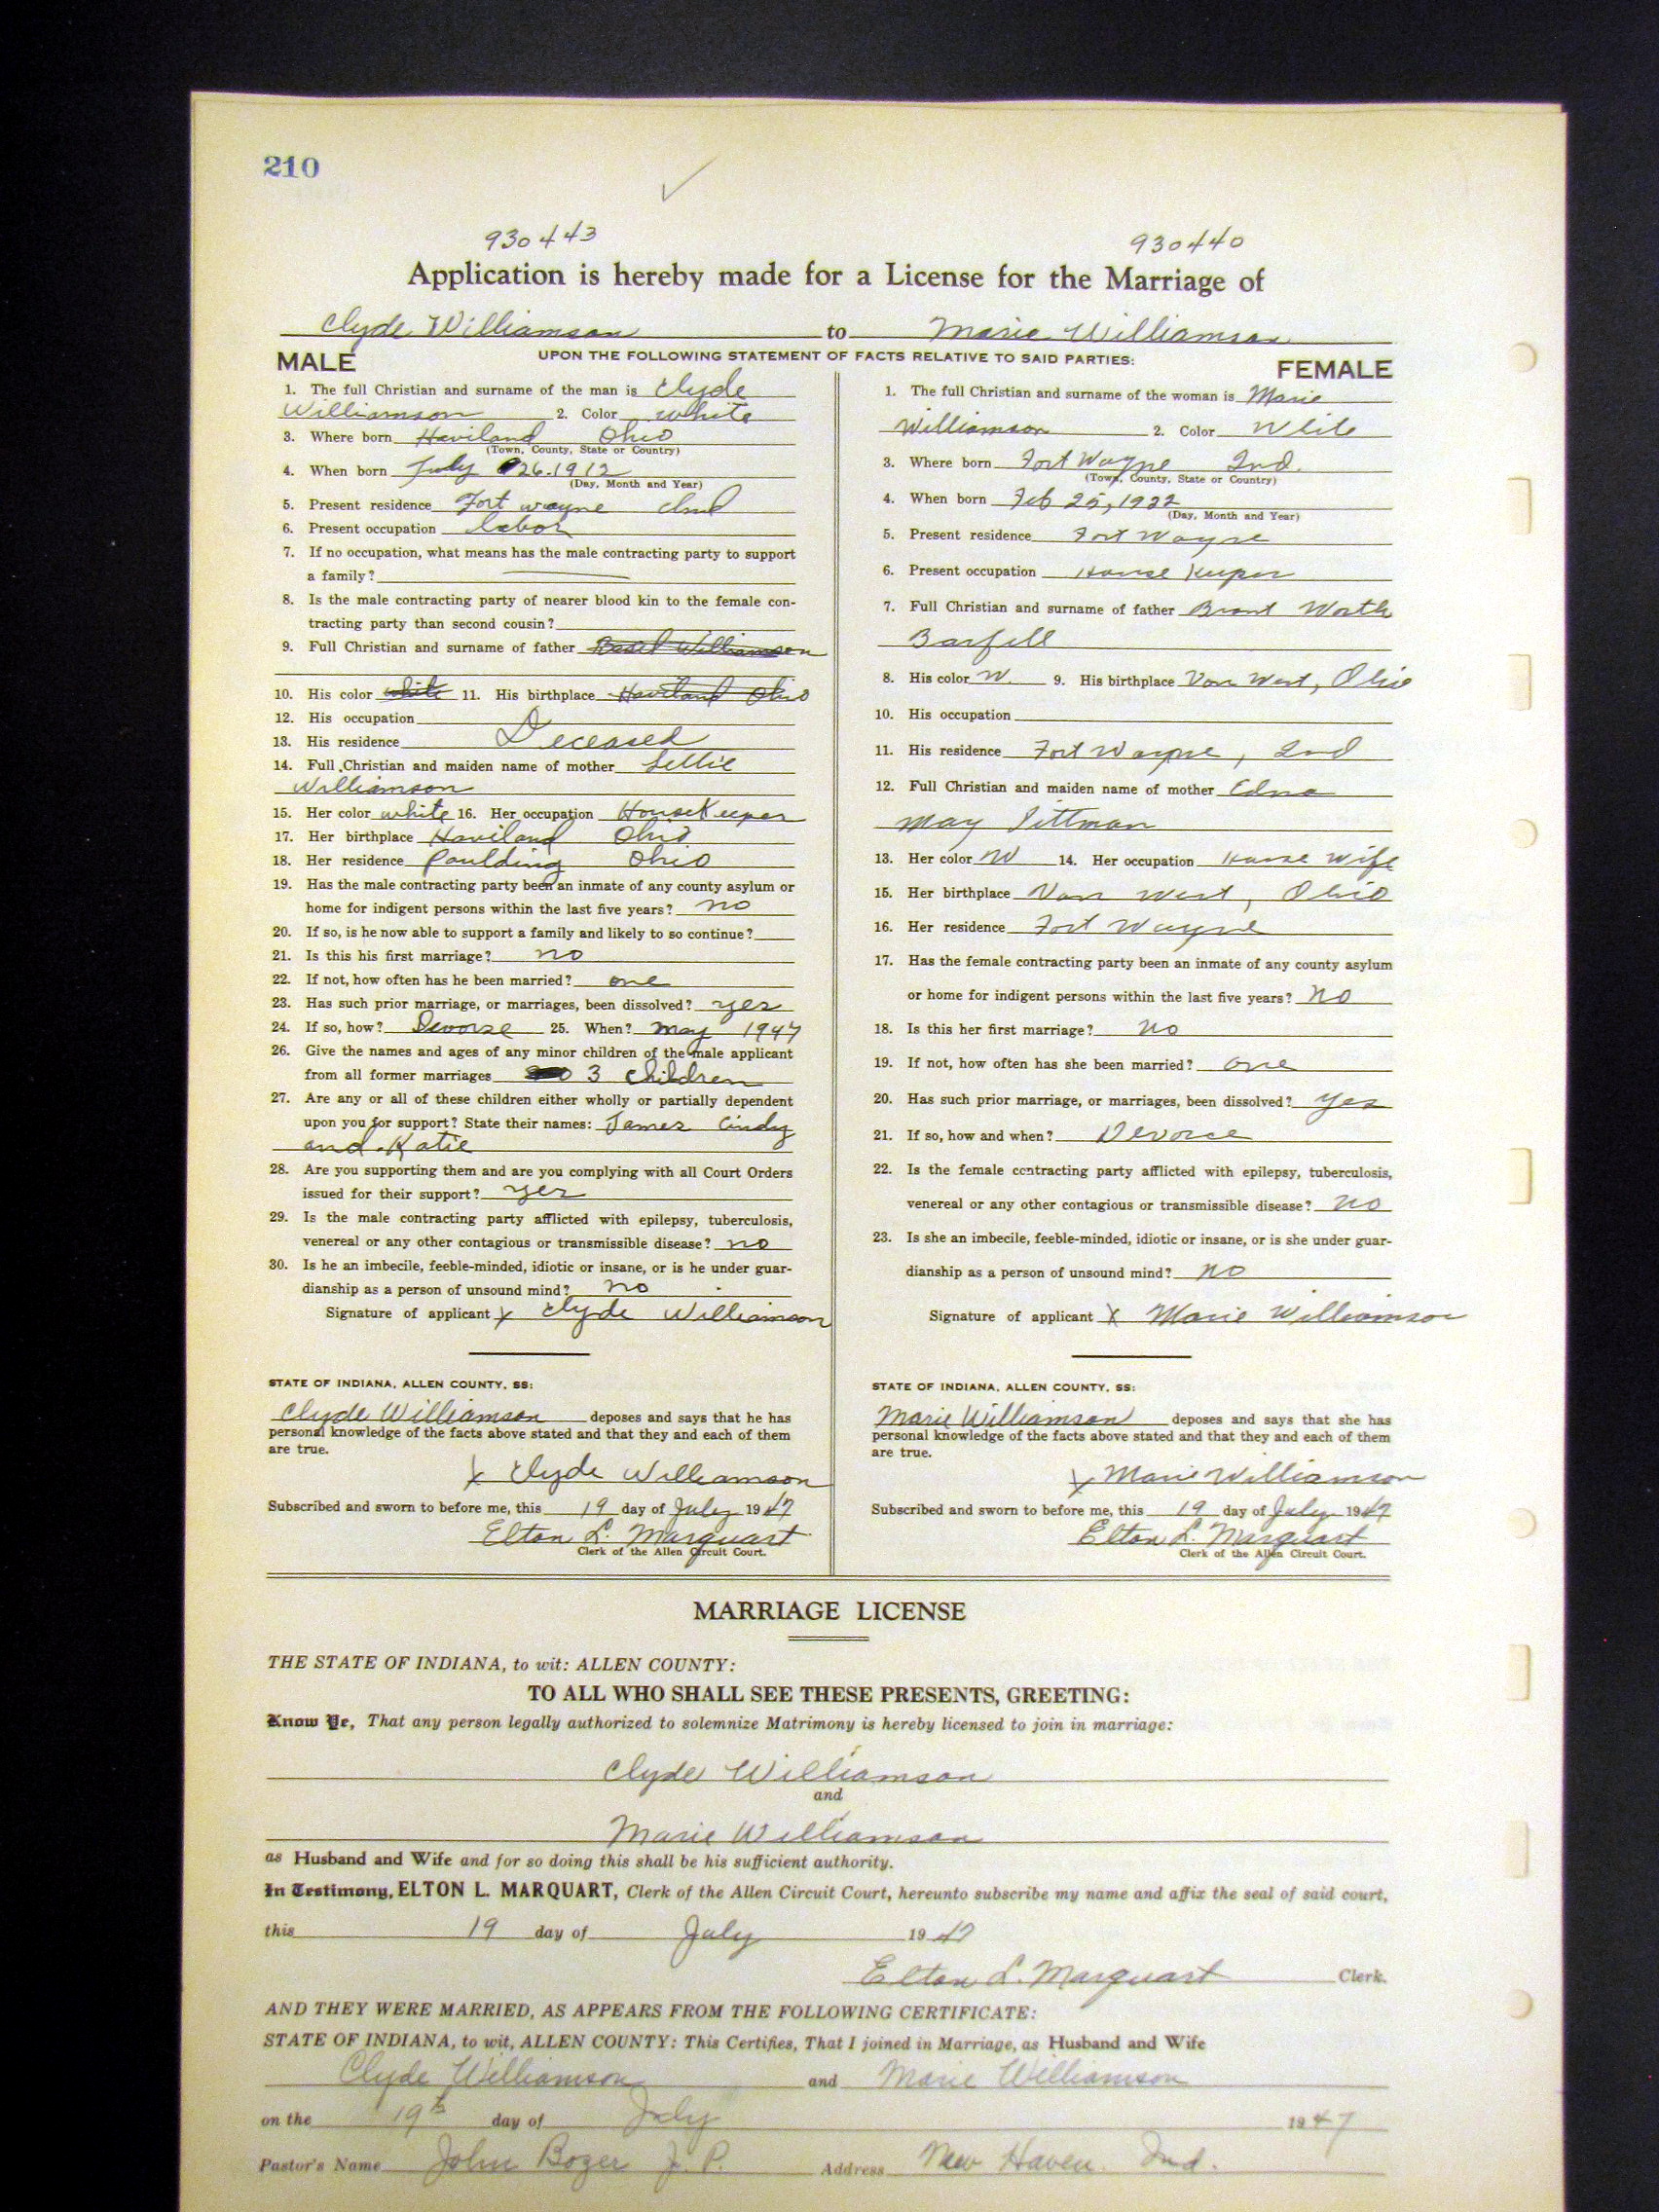 210
930443 930440
Application is hereby made for a License for the Marriage of
Clyde Williamson to Marie Williamson
UPON THE FOLLOWING STATEMENT OF FACTS RELATIVE TO SAID PARTIES:
MALE
1. The full Christian and surname of the man is Clyde
Williamson 2. Color white
3. Where born Haviland Ohio
(Town, County, State or Country)
4. When born July 26-1912
(Day, Month and Year)
5. Present residence Fort wayne Ind
6. Present occupation labor
7. If no occupation, what means has the male contracting party to support
a family?
8. Is the male contracting party of nearer blood kin to the female con-
tracting party than second cousin?
9. Full Christian and surname of father Williamson
10. His color white 11. His birthplace Haviland Ohio
12. His occupation
13. His residence Deceased
14. Full Christian and maiden name of mother
Williamson
15. Her color white 16. Her occupation HouseKeeper
17. Her birthplace Haviland Ohio
18. Her residence Paulding Ohio
19. Has the male contracting party been an inmate of any county asylum or
home for indigent persons within the last five years? no
20. If so, is he now able to support a family and likely to so continue?
21. Is this his first marriage? no
22. If not, how often has he been married? one
23. Has such prior marriage, or marriages, been dissolved? yes
24. If so, how? Devorse 25. When? may 1947
26. Give the names and ages of any minor children of the male applicant
from all former marriages 3 children
27. Are any or all of these children either wholly or partially dependent
upon you for support? State their names: James Cindy
and Katie
28. Are you supporting them and are you complying with all Court Orders
issued for their support? yes
29. Is the male contracting party afflicted with epilepsy, tuberculosis,
venereal or any other contagious or transmissible disease? no
30. Is he an imbecile, feeble-minded, idiotic or insane, or is he under guar-
dianship as a person of unsound mind? no
Signature of applicant x Clyde Williamson
STATE OF INDIANA, ALLEN COUNTY, SS:
Clyde Williamson deposes and says that he has
personal knowledge of the facts above stated and that they and each of them
are true.
x Clyde Williamson
Subscribed and sworn to before me, this 19 day of July 1947
Elton L. Marquart
Clerk of the Allen Circuit Court.
FEMALE
1. The full Christian and surname of the woman is Marie
Williamson 2. Color White
3. Where born Fort Wayne Ind.
(Town, County, State or Country)
4. When born Feb 25, 1922
(Day, Month and Year)
5. Present residence Fort Wayne
6. Present occupation House Keeper
7. Full Christian and surname of father Worth
Barfell
8. His color W. 9. His birthplace Van Wert, Ohio
10. His occupation
11. His residence Fort Wayne, Ind
12. Full Christian and maiden name of mother Edna
May Pittman
13. Her color W 14. Her occupation House Wife
15. Her birthplace Van Wert, Ohio
16. Her residence Fort Wayne
17. Has the female contracting party been an inmate of any county asylum
or home for indigent persons within the last five years? no
18. Is this her first marriage? no
19. If not, how often has she been married? one
20. Has such prior marriage, or marriages, been dissolved? yes
21. If so, how and when? Devorce
22. Is the female contracting party afflicted with epilepsy, tuberculosis,
venereal or any other contagious or transmissible disease? no
23. Is she an imbecile, feeble-minded, idiotic or insane, or is she under guar-
dianship as a person of unsound mind? no
Signature of applicant X Marie Williamson
STATE OF INDIANA, ALLEN COUNTY, SS:
Marie Williamson deposes and says that she has
personal knowledge of the facts above stated and that they and each of them
are true.
x Marie Williamson
Subscribed and sworn to before me, this 19 day of July 1947
Elton L. Marquart
Clerk of the Allen Circuit Court.
MARRIAGE LICENSE
THE STATE OF INDIANA, to wit: ALLEN COUNTY:
TO ALL WHO SHALL SEE THESE PRESENTS, GREETING:
Know Ye, That any person legally authorized to solemnize Matrimony is hereby licensed to join in marriage:
Clyde Williamson
and
Marie Williamson
as Husband and Wife and for so doing this shall be his sufficient authority.
In Testimony, ELTON L. MARQUART, Clerk of the Allen Circuit Court, hereunto subscribe my name and affix the seal of said court,
this 19 day of July 1947
Elton L. Marquart Clerk.
AND THEY WERE MARRIED, AS APPEARS FROM THE FOLLOWING CERTIFICATE:
STATE OF INDIANA, to wit, ALLEN COUNTY: This Certifies, That I joined in Marriage, as Husband and Wife
Clyde Williamson and Marie Williamson
on the 19th day of July 1947
Pastor's Name John Bozer J. P. Address New Haven Ind.